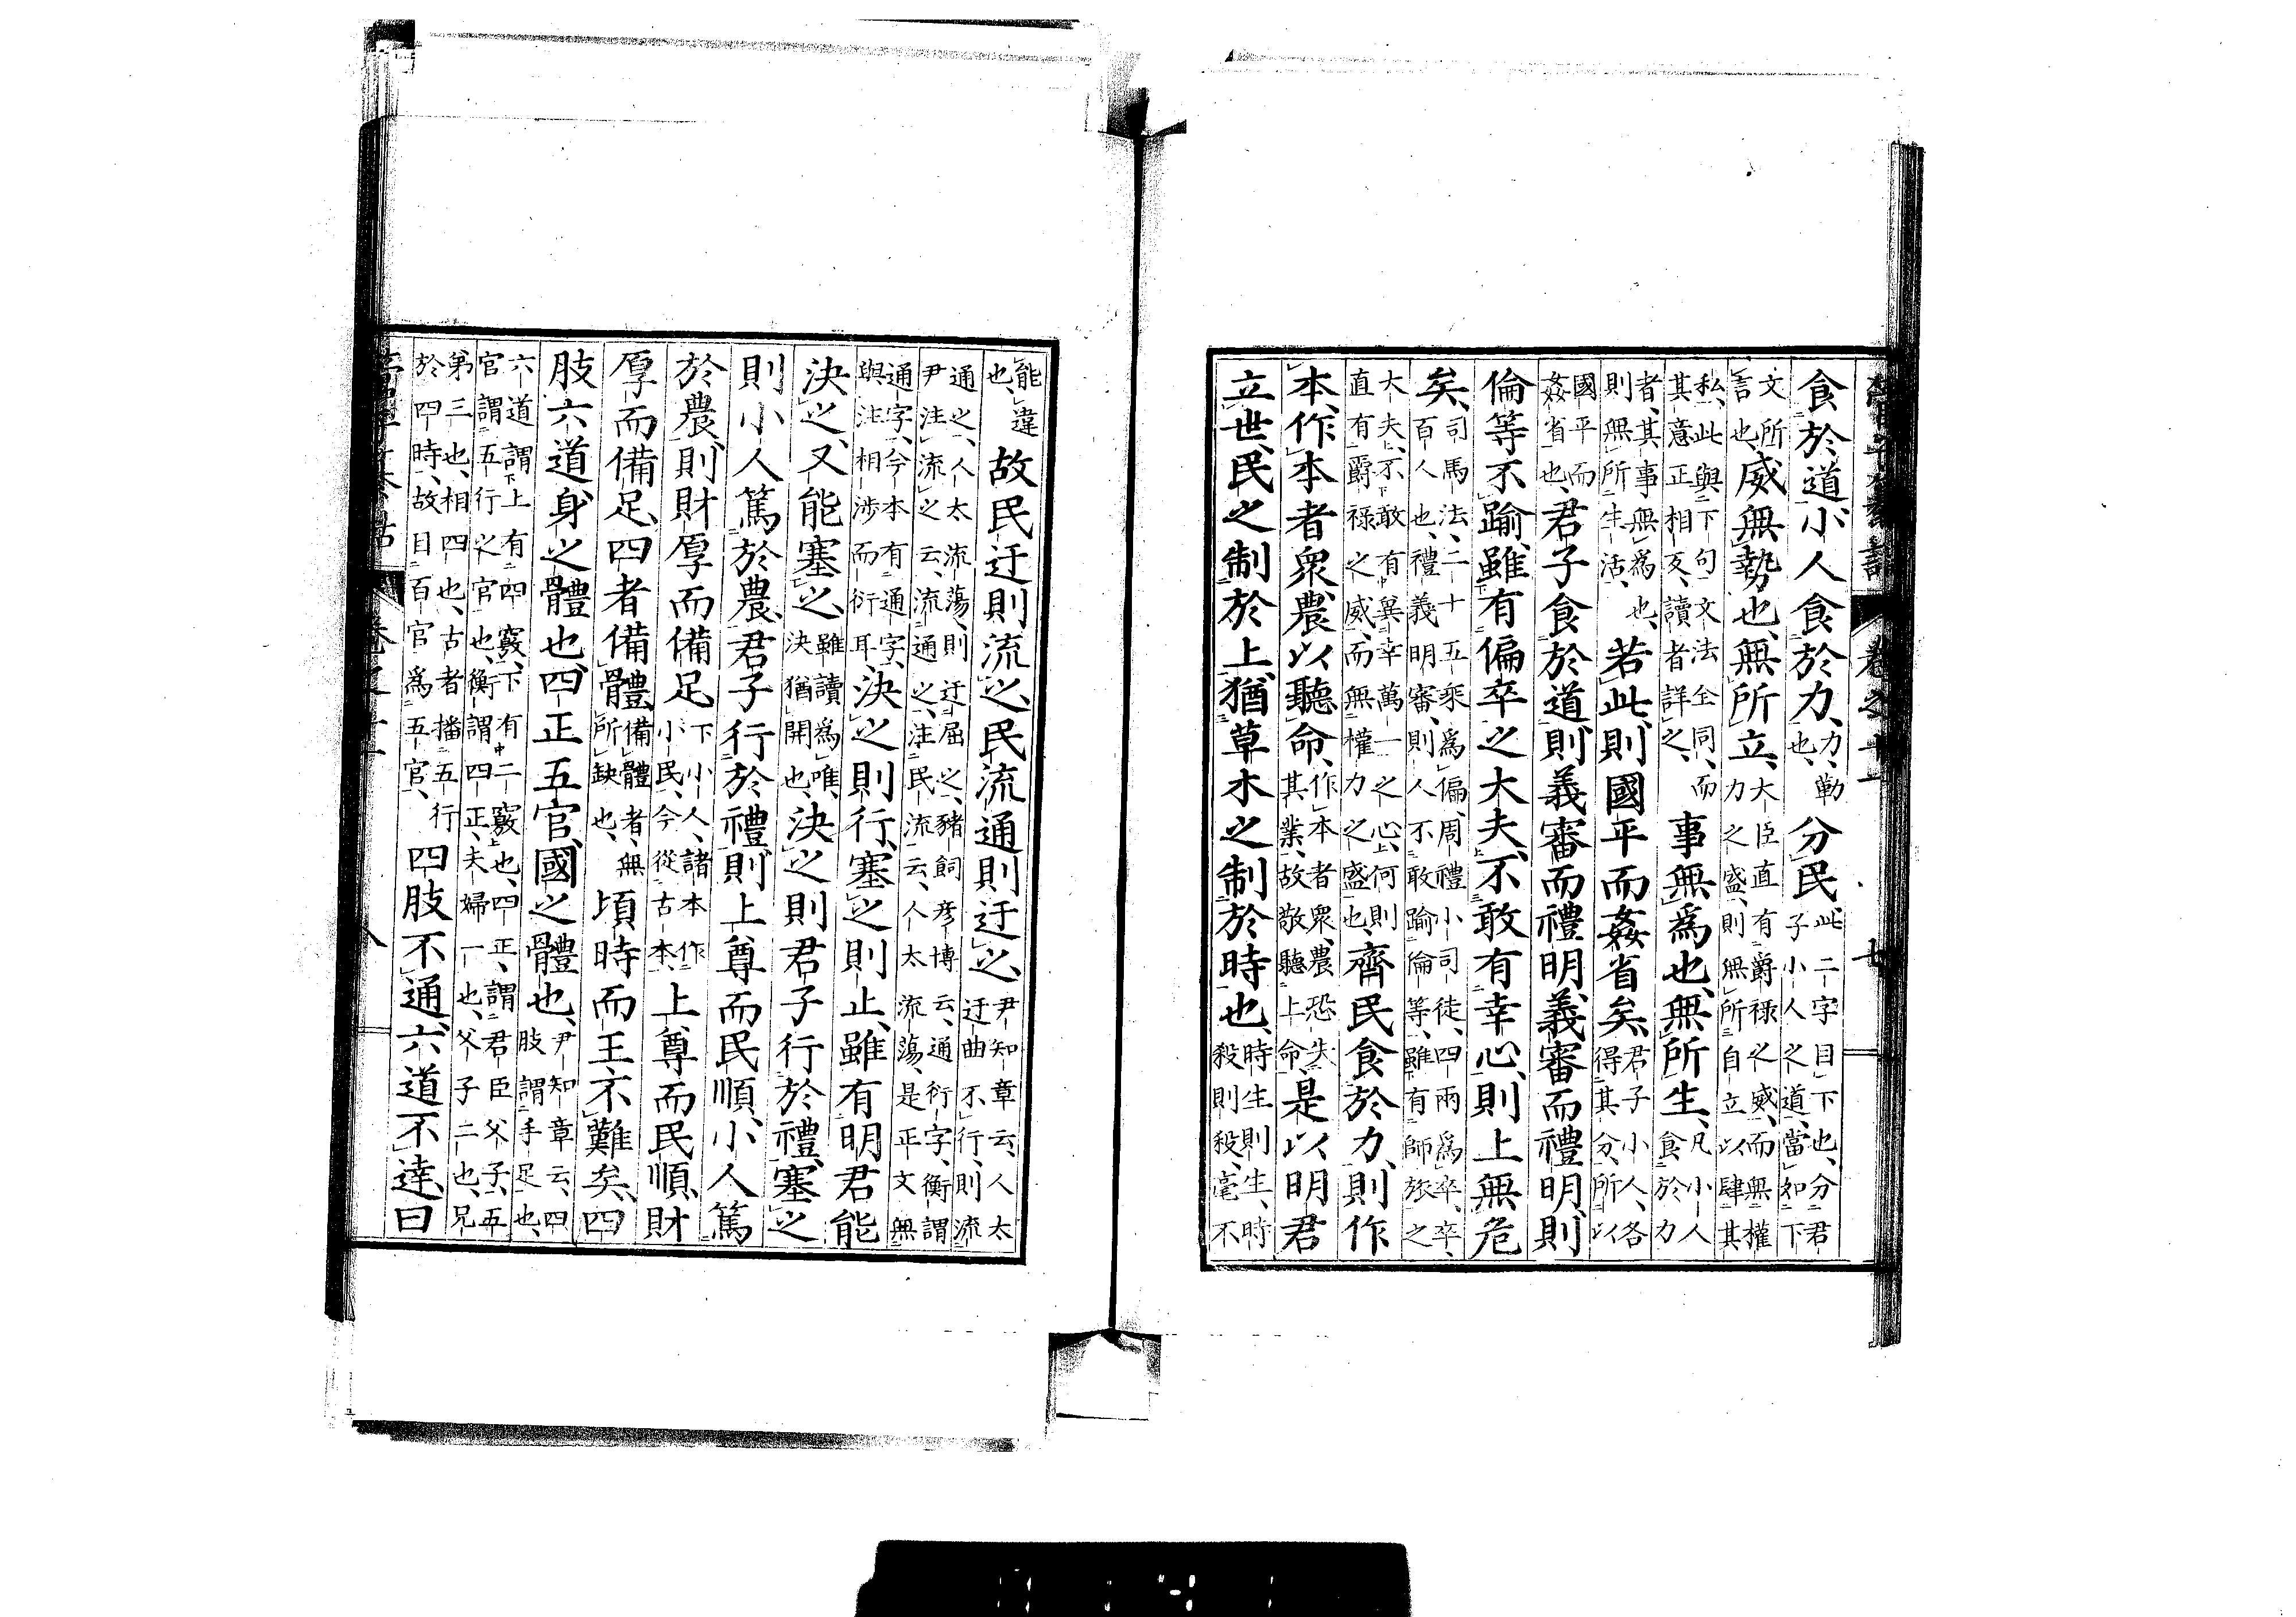 管子纂詁 卷之十一 七
食於道、小人食於力、力、勤也、分民、此二字目下也、分君子小人之道、當如下
文所言也、威無勢也、無所立、大臣直有爵祿之威、而無權力之盛、則無所自立以肆其
私、此與下句文法全同、而其意正相反、讀者詳之、事無爲也、無所生、凡小人食於力
者、其事無爲也、則無所生活、若此、則國平而姦省矣、君子小人各得其分、所以
國平而姦省也、君子食於道、則義審而禮明、義審而禮明、則
倫等不踰、雖有偏卒之大夫、不敢有幸心、則上無危
矣、司馬法、二十五乘爲偏、周禮小司徒、四兩爲卒、卒、百人也、禮義明審、則人不敢踰倫等、雖有師旅之
大夫、不敢有冀幸萬一之心、何則直有爵祿之威、而無權力之盛也、齊民食於力、則作
本、作本者衆、農以聽命、作本者衆、農恐失其業、故敬聽上命、是以明君
立世、民之制於上、猶草木之制於時也、時生則生、時殺則殺、毫不
能違也、故民迂則流之、民流通則迂之、尹知章云、人太迂曲不行、則流
通之、人太流蕩、則迂屈之、豬飼彥博云、通衍字、衡謂尹注流之云、流通之、注民流云、人太流蕩、是正文無
通字、今本有通字、與注相涉而衍耳、決之則行、塞之則止、雖有明君能
決之、又能塞之、雖讀爲唯、決猶開也、決之則君子行於禮、塞之
則小人篤於農、君子行於禮、則上尊而民順、小人篤
於農、則財厚而備足下小人、諸本作小民、今從古本、上尊而民順、財
厚而備足、四者備體備體者、無所缺也、頃時而王不難矣、四
肢六道身之體也、四正五官、國之體也、尹知章云、四肢謂手足也、
六道謂上有四竅、下有二竅也、四正、謂君臣父子、五官謂五行之官也、衡謂四正、夫婦一也、父子二也、兄
第三也、相四也、古者播五行於四時、故目百官爲五官、四肢不通、六道不達、曰
八